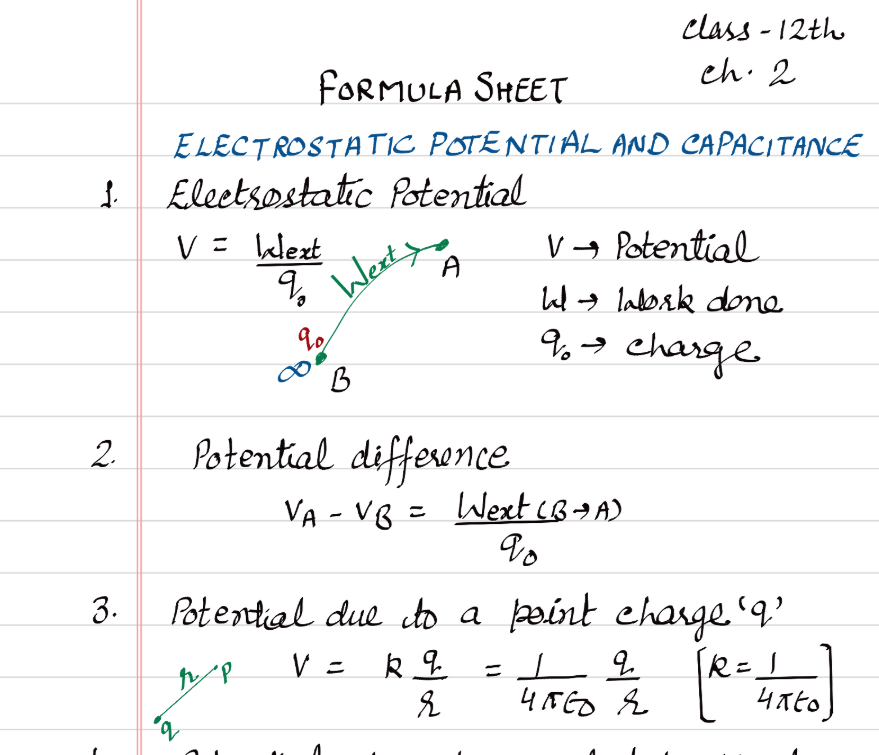 Class - 12th
ch. 2
FORMULA SHEET
ELECTROSTATIC POTENTIAL AND CAPACITANCE
1. Electrostatic Potential
V = Wext / q₀
Wext
A
q₀
∞
B
V → Potential
W → Work done
q₀ → charge
2. Potential difference
VA - VB = Wext (B→A) / q₀
3. Potential due to a point charge 'q'
r
P
q
V = k q/r = 1/4πε₀ q/r [k = 1/4πε₀]